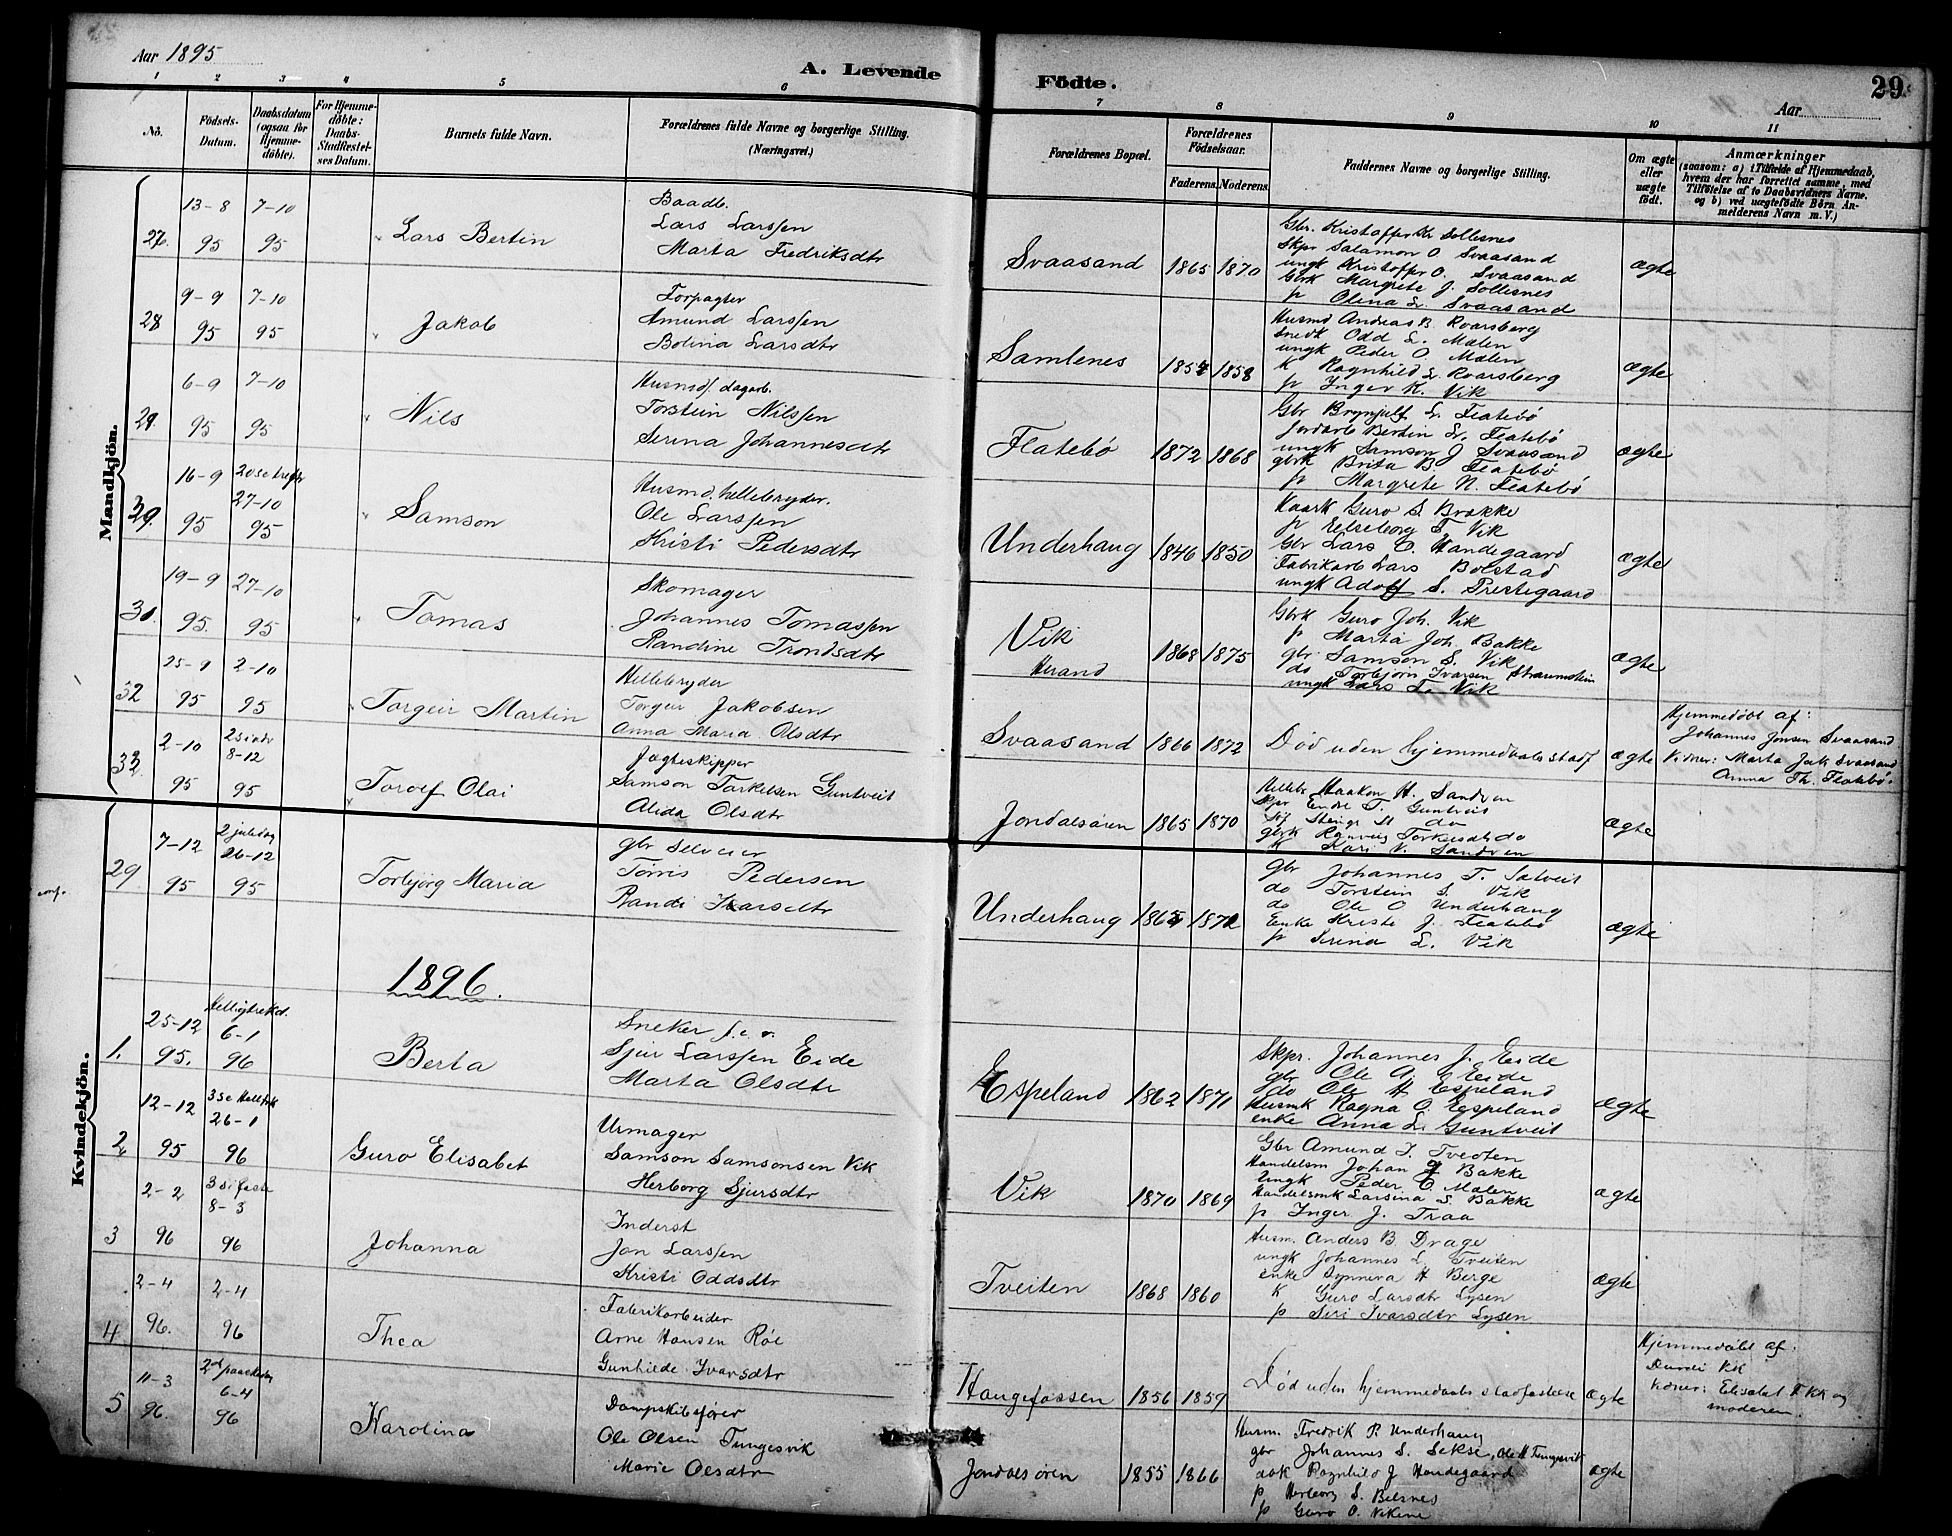 Aar 1895
A. Levende Födte.
29.
Aar
1 2 3 4 5 6 7 8 9 10 11
No.
Födsels-
Datum.
Daabsdatum
(ogsaa for
Hjemme-
döbte).
For Hjemme-
döbte:
Daabs-
Stadfæstel-
ses Datum.
Barnets fulde Navn.
Forældrenes fulde Navne og borgerlige Stilling.
(Næringsvei.)
Forældrenes Bopæl.
Forældrenes
Födselsaar.
Faderens. Moderens.
Faddernes Navne og borgerlige Stilling.
Om ægte
eller
uægte
födt.
Anmærkninger
(saasom: a) i Tilfælde af Hjemmedaab,
hvem der har forrettet samme, med
Tilföielse af to Daabsvidners Navne.
og b) ved uægtefödte Börn An-
melderens Navn m. V.)
Mandkjön.
27. 13-8 95 7-10 95
Lars Bertin
Baadb.
Lars Larssen
Marta Fredriksdtr
Svaasand 1865 1870
Gbr. Kristoffer Kr Sollesnes
Skpr Salamon O Svaasand
ungk Kristoffer O. Svaasand
Gbrk Margrete J. Sollesnes
p Olina L. Svaasand
ægte
28 9-9 95 7-10 95
Jakob
Forpagter
Amund Larssen
Bolina Larsdtr
Samlenes 1858
Husmd Andreas B. Roarsberg
Snedk Odd L. Mælen
ungk Peder O. Mælen
k Ragnhild L. Roarsberg
p Inger K. Vik
ægte
28. 6-9 95 7-10 95
Nils
Husmd/ dagarb.
Torstein Nilssen
Serina Johannesdtr
Flatebö 1872 1868
Gbr Brynjulf L. Flatebö
Jordarb Bertin L. Flatebö
ungk Samson J Svaasand
gbrk Brita B. Flatebö
p Margrete N. Flatebö
ægte
29. 16-9 95 27-10 95
Samson
Husmd. hellebryder.
Ole Larssen
Kristi Pedersdtr
Underhaug 1846 1850
Kaark Guro S. Brakke
p Elseborg T. Vik
Gbr Lars O. Handegaard
Fabrikarb Lars Bolstad
ungk Adolf S. Prestegaard
ægte
19-9 95. 27-10 95
Tomas
Skomager
Johannes Tomassen
Randine Trondsdtr
Vik
Herand
1868 1875
Gbrk Guro Joh. Vik
p Marta Joh. Bakke
gbr Samson S. Vik
do Torbjörn Ivarsen
ungk Lars L. Vik
ægte
25-9 95 2-10 95
Torgeir Martin
Hellebryder
Torgeir Jakobsen
Anna Maria Olsdtr
Svaasand 1866 1872
Död uden hjemmedaabs stadf
ægte
Hjemmedöbt af:
Johannes Jonsen Svaasand
Vidner: Marta Jak Svaasand
Anna Th. Flatebö.
2-10 95 8-12 95
Torolf Olai
Jagteskipper
Samson Torkelsen Guntveit
Alida Olsdtr
Jondalsören 1865 1870
Haakon H. Sandven
Skpr Endre T. Guntveit
gbrk Ranveig Torkelsdtr do
k Kari V. Sandven
ægte
29 7-12 95 2 juledag 26-12 95
Torbjörg Maria
gbr selveier
Törris Pedersen
Randi Ivarsdtr
Underhaug
gbr Johannes T. Satveit
do Torstein S. Vik
do Ole O Underhaug
Enke Kristi J. Flatebö
p Serina L. Vik
ægte
1896.
Kvindekjön.
1. 25-12 95. Helligtrekd. 6-1 96
Berta
Sneker
Sjur Larssen Eide
Marta Olsdtr
Espeland 1862 1871
Skpr. Johannes J. Eide
gbr Ole A. Eide
do Ole H Espeland
Husmk Ragna O. Espeland
enke Anna L. Guntveit
ægte
2 12-12 95 26-1 96
Guro Elisabet
Urmager
Samson Samsonsen Vik
Herborg Sjursdtr
Vik 1870 1869
Gbr Amund I. Tveiten
Handelsm Johan Bakke
Ungk Peder O. Mælen
Handelsmk Larsina S. Bakke
p Inger J. Traa
ægte
3 2-2 96 3 s i faste 8-3 96
Johanna
Inderst
Jon Larssen
Kristi Oddsdtr
Tveiten 1868 1860
Husm. Anders B. Drage
ungk Johannes L. Tveiten
enke Synneva H Berge
k Guro Larsdtr Lysen
p Siri Ivarsdtr Lysen
ægte
4 2-4 96. 2-4 96
Thea
Fabrikarbeider
Arne Hansen Röe
Gunhilde Ivarsdtr
Haugefossen 1856 1859
Död uden hjemmedaabs stadfæstelse
ægte
Hjemmedöbt af:
Durdei Vik
Vidner: Elisabet Vik og
moderen.
5 11-3 96. 6-4 96
Karolina
Dampskibsförer
Ole Olsen Tungesvik
Marie Olsdtr
Jondalsören 1855 1866
Husm. Fredrik P. Underhaug
gbr Johannes S. Sekse, Ole H Tungesvik
Ragnhild J Handegaard
p Herborg S. Belsnes
p Guro O. Vikene
ægte